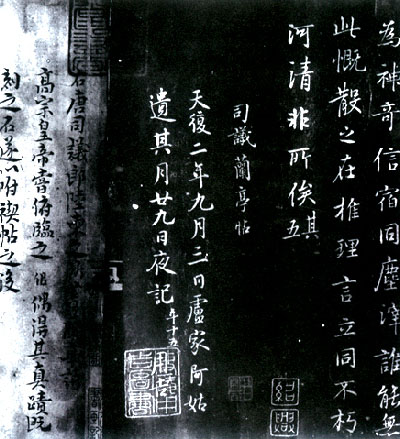 為神奇信宿同塵滓誰能無
此慨散之在推理言立同不朽
河清非所俟其五
司議蘭亭帖
天復二年九月三日盧家阿姑
遺其月廿九日夜記年十五
右唐司議郎陸柬之
高宗皇帝嘗俯臨之偶得其真蹟既
刻之石遂以附禊帖之後